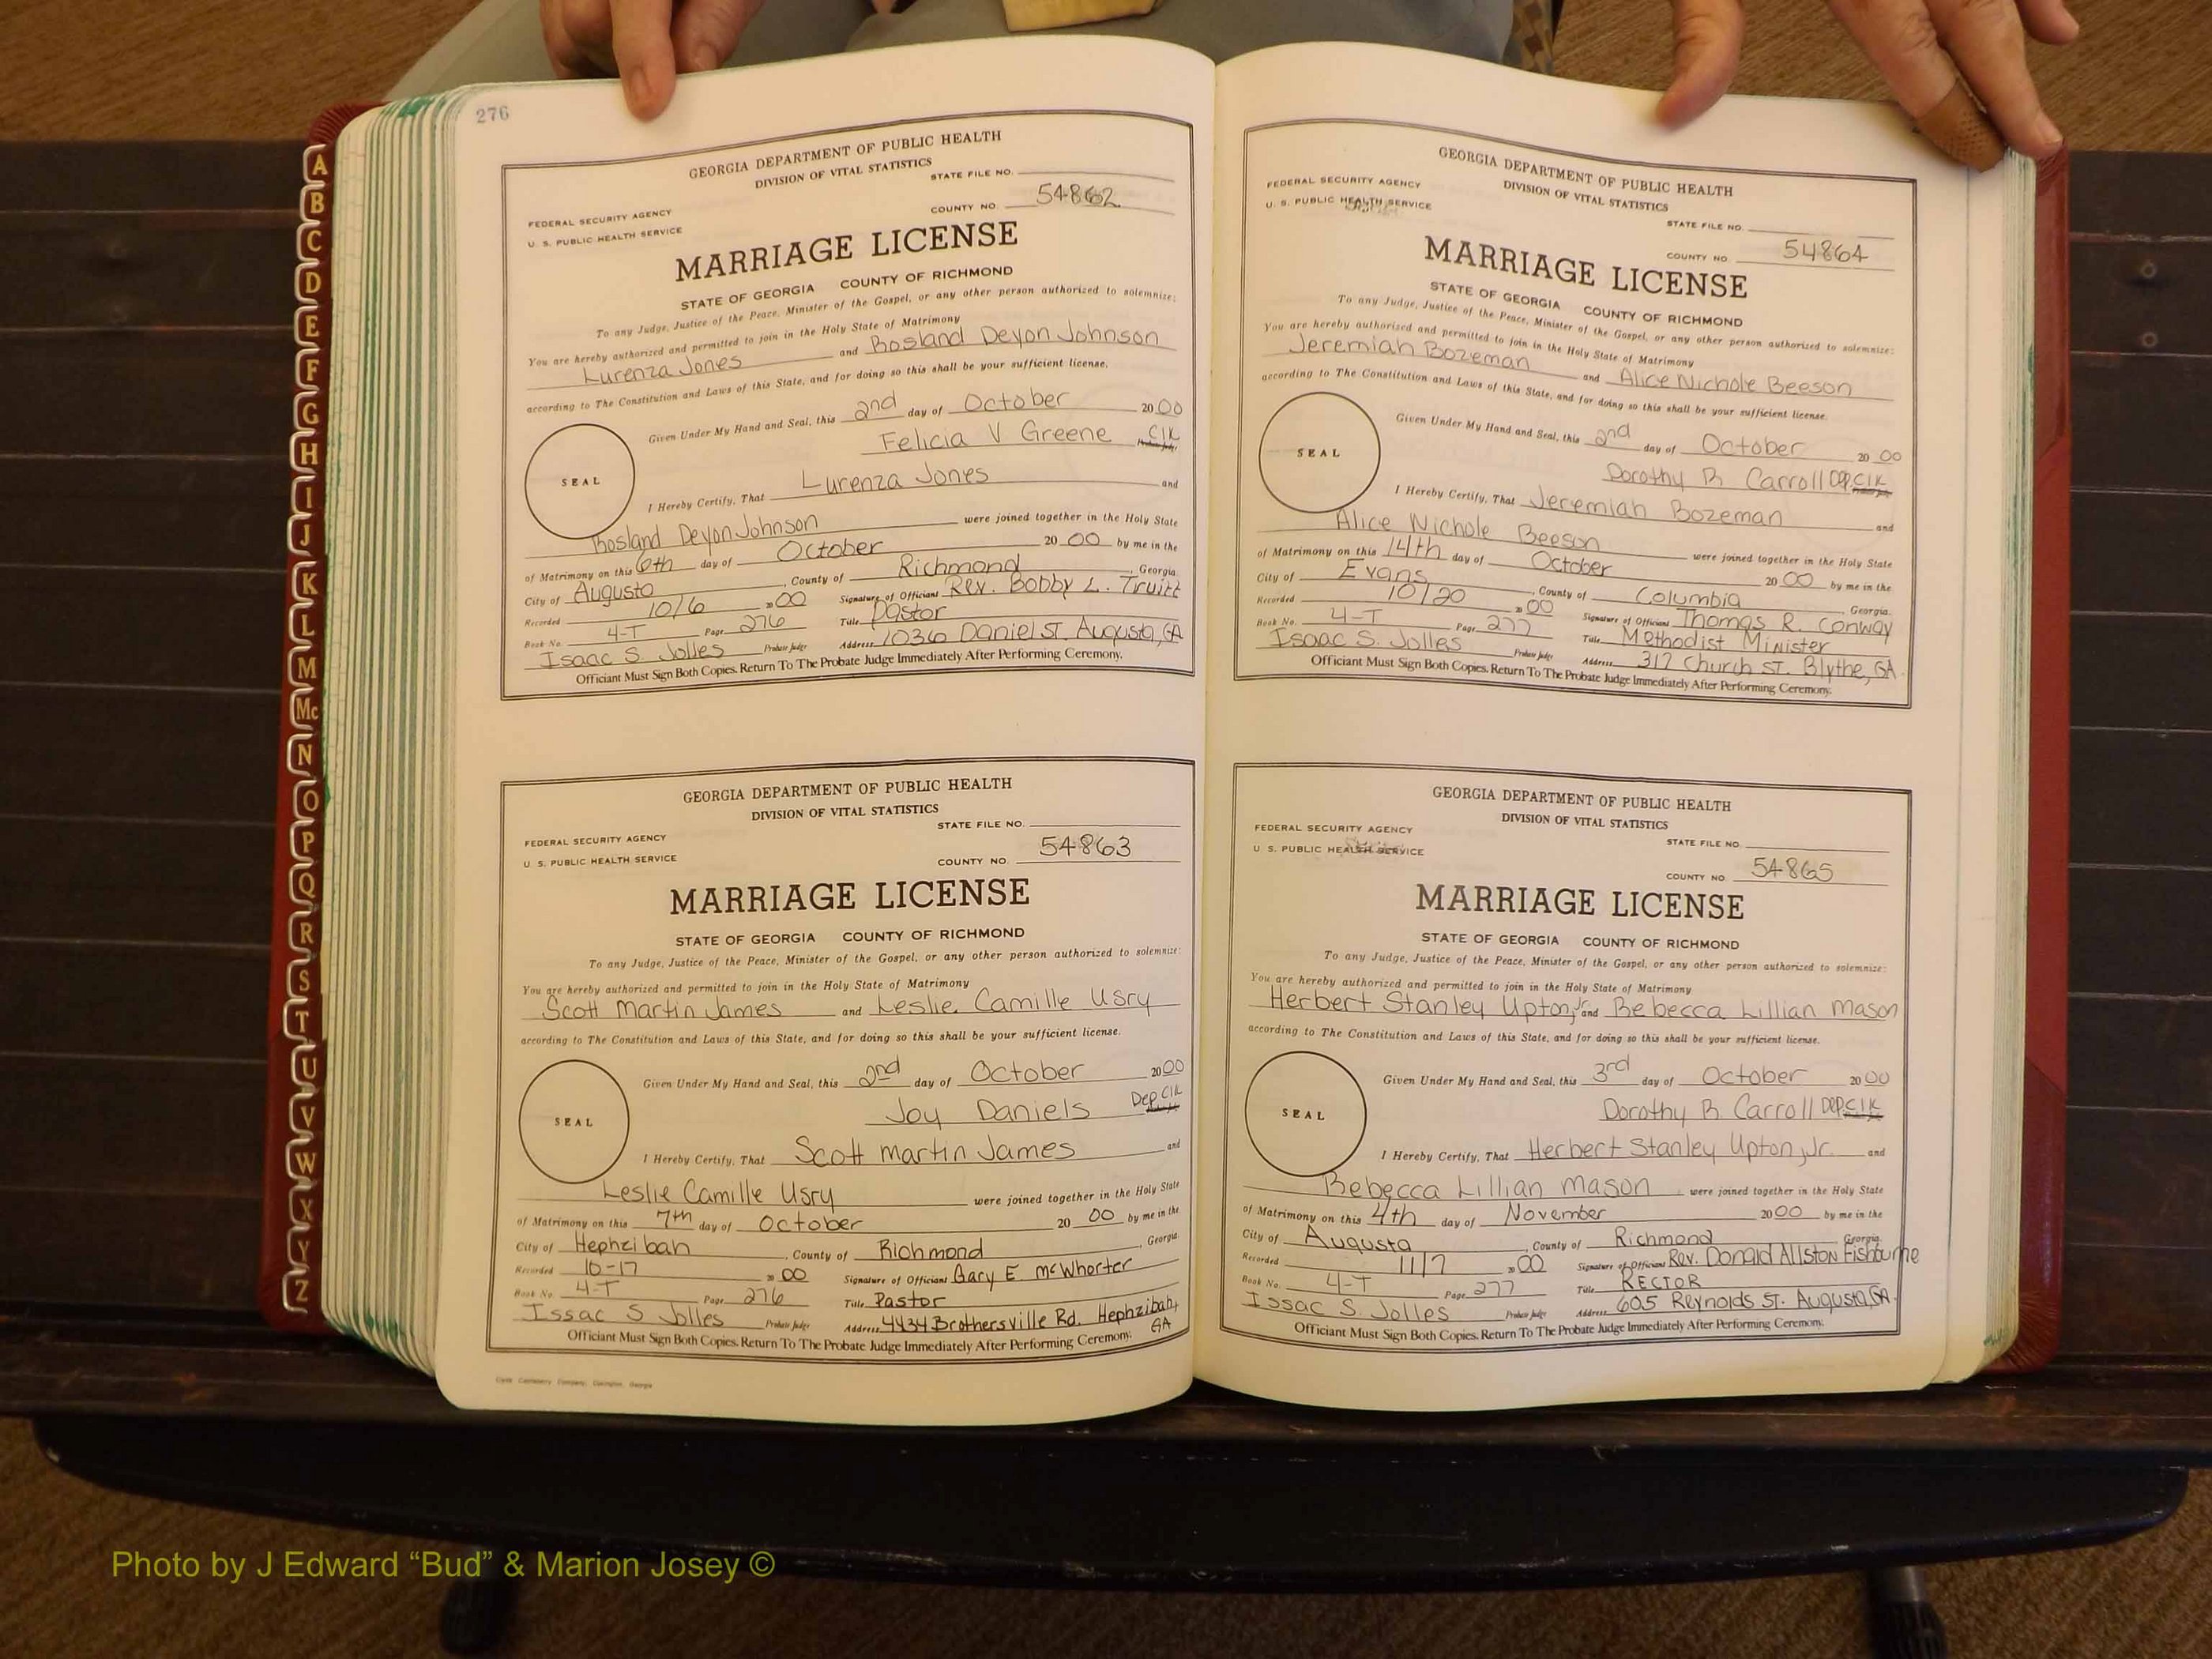 276
A
B
C
D
E
F
G
H
I
J
K
L
M
Mc
N
O
P
Q
R
S
T
U
V
W
X
Y
Z
GEORGIA DEPARTMENT OF PUBLIC HEALTH
DIVISION OF VITAL STATISTICS
STATE FILE NO.
FEDERAL SECURITY AGENCY
U. S. PUBLIC HEALTH SERVICE
COUNTY NO. 54862
MARRIAGE LICENSE
STATE OF GEORGIA COUNTY OF RICHMOND
To any Judge, Justice of the Peace, Minister of the Gospel, or any other person authorized to solemnize:
You are hereby authorized and permitted to join in the Holy State of Matrimony
Lurenza Jones and Rosland Devon Johnson
according to The Constitution and Laws of this State, and for doing so this shall be your sufficient license.
Given Under My Hand and Seal, this 2nd day of October 2000
Felicia V Greene Clk
SEAL
I Hereby Certify, That Lurenza Jones and
Rosland Devon Johnson were joined together in the Holy State
of Matrimony on this 6th day of October 20 00 by me in the
City of Augusta, County of Richmond, Georgia.
Recorded 10/6 2000 Signature of Officiant Rev. Bobby L. Truitt
Book No. 4-T Page 276 Title Pastor
Isaac S Jolles Probate Judge Address 1036 Daniel St. Augusta, GA
Officiant Must Sign Both Copies. Return To The Probate Judge Immediately After Performing Ceremony.
GEORGIA DEPARTMENT OF PUBLIC HEALTH
DIVISION OF VITAL STATISTICS
STATE FILE NO.
FEDERAL SECURITY AGENCY
U. S. PUBLIC HEALTH SERVICE
COUNTY NO. 54863
MARRIAGE LICENSE
STATE OF GEORGIA COUNTY OF RICHMOND
To any Judge, Justice of the Peace, Minister of the Gospel, or any other person authorized to solemnize:
You are hereby authorized and permitted to join in the Holy State of Matrimony
Scott Martin James and Leslie Camille Usry
according to The Constitution and Laws of this State, and for doing so this shall be your sufficient license.
Given Under My Hand and Seal, this 2nd day of October 2000
Joy Daniels Dep. Clk
SEAL
I Hereby Certify, That Scott Martin James and
Leslie Camille Usry were joined together in the Holy State
of Matrimony on this 7th day of October 20 00 by me in the
City of Hephzibah, County of Richmond, Georgia.
Recorded 10-17 2000 Signature of Officiant Gary E McWhorter
Book No. 4-T Page 276 Title Pastor
Issac S Jolles Probate Judge Address 4434 Brothersville Rd. Hephzibah, GA
Officiant Must Sign Both Copies. Return To The Probate Judge Immediately After Performing Ceremony.
GEORGIA DEPARTMENT OF PUBLIC HEALTH
DIVISION OF VITAL STATISTICS
FEDERAL SECURITY AGENCY
U. S. PUBLIC HEALTH SERVICE
STATE FILE NO.
COUNTY NO. 54864
MARRIAGE LICENSE
STATE OF GEORGIA COUNTY OF RICHMOND
To any Judge, Justice of the Peace, Minister of the Gospel, or any other person authorized to solemnize:
You are hereby authorized and permitted to join in the Holy State of Matrimony
Jeremiah Bozeman and Alice Nichole Beeson
according to The Constitution and Laws of this State, and for doing so this shall be your sufficient license.
Given Under My Hand and Seal, this 2nd day of October 20 00
Dorothy B Carroll Dep. Clk
SEAL
I Hereby Certify, That Jeremiah Bozeman and
Alice Nichole Beeson were joined together in the Holy State
of Matrimony on this 14th day of October 20 00 by me in the
City of Evans, County of Columbia, Georgia.
Recorded 10/20 2000 Signature of Officiant Thomas R. Conway
Book No. 4-T Page 277 Title Methodist Minister
Isaac S. Jolles Probate Judge Address 317 Church St. Blythe, GA
Officiant Must Sign Both Copies. Return To The Probate Judge Immediately After Performing Ceremony.
GEORGIA DEPARTMENT OF PUBLIC HEALTH
DIVISION OF VITAL STATISTICS
FEDERAL SECURITY AGENCY
U. S. PUBLIC HEALTH SERVICE
STATE FILE NO.
COUNTY NO. 54865
MARRIAGE LICENSE
STATE OF GEORGIA COUNTY OF RICHMOND
To any Judge, Justice of the Peace, Minister of the Gospel, or any other person authorized to solemnize:
You are hereby authorized and permitted to join in the Holy State of Matrimony
Herbert Stanley Upton, Jr. and Rebecca Lillian Mason
according to The Constitution and Laws of this State, and for doing so this shall be your sufficient license.
Given Under My Hand and Seal, this 3rd day of October 20 00
Dorothy B Carroll Dep. Clk
SEAL
I Hereby Certify, That Herbert Stanley Upton, Jr. and
Rebecca Lillian Mason were joined together in the Holy State
of Matrimony on this 4th day of November 2000 by me in the
City of Augusta, County of Richmond, Georgia.
Recorded 11/7 2000 Signature of Officiant Rev. Donald Allston Fishburne
Book No. 4-T Page 277 Title RECTOR
Issac S. Jolles Probate Judge Address 605 Reynolds St. Augusta, GA.
Officiant Must Sign Both Copies. Return To The Probate Judge Immediately After Performing Ceremony.
Photo by J Edward “Bud” & Marion Josey ©